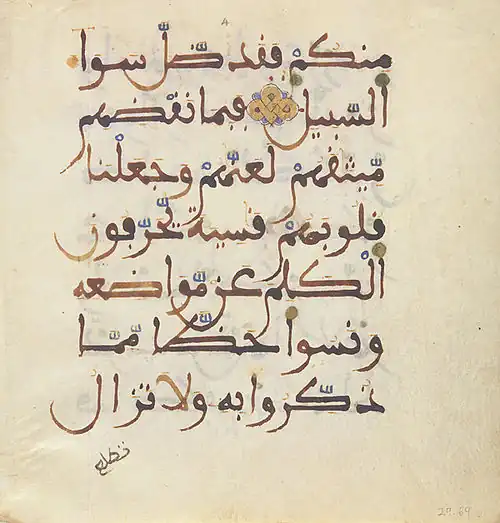 4
منكم فقد ضلّ سوا
السّبيل فبما نقضهم
مّيثقهم لعنّهم وجعلنا
قلوبهم قسية يحرّفون
الكلم عن مّواضعه
ونسوا حظّا مّمّا
ذكّروا به ولا تزال
تطلع
29.69